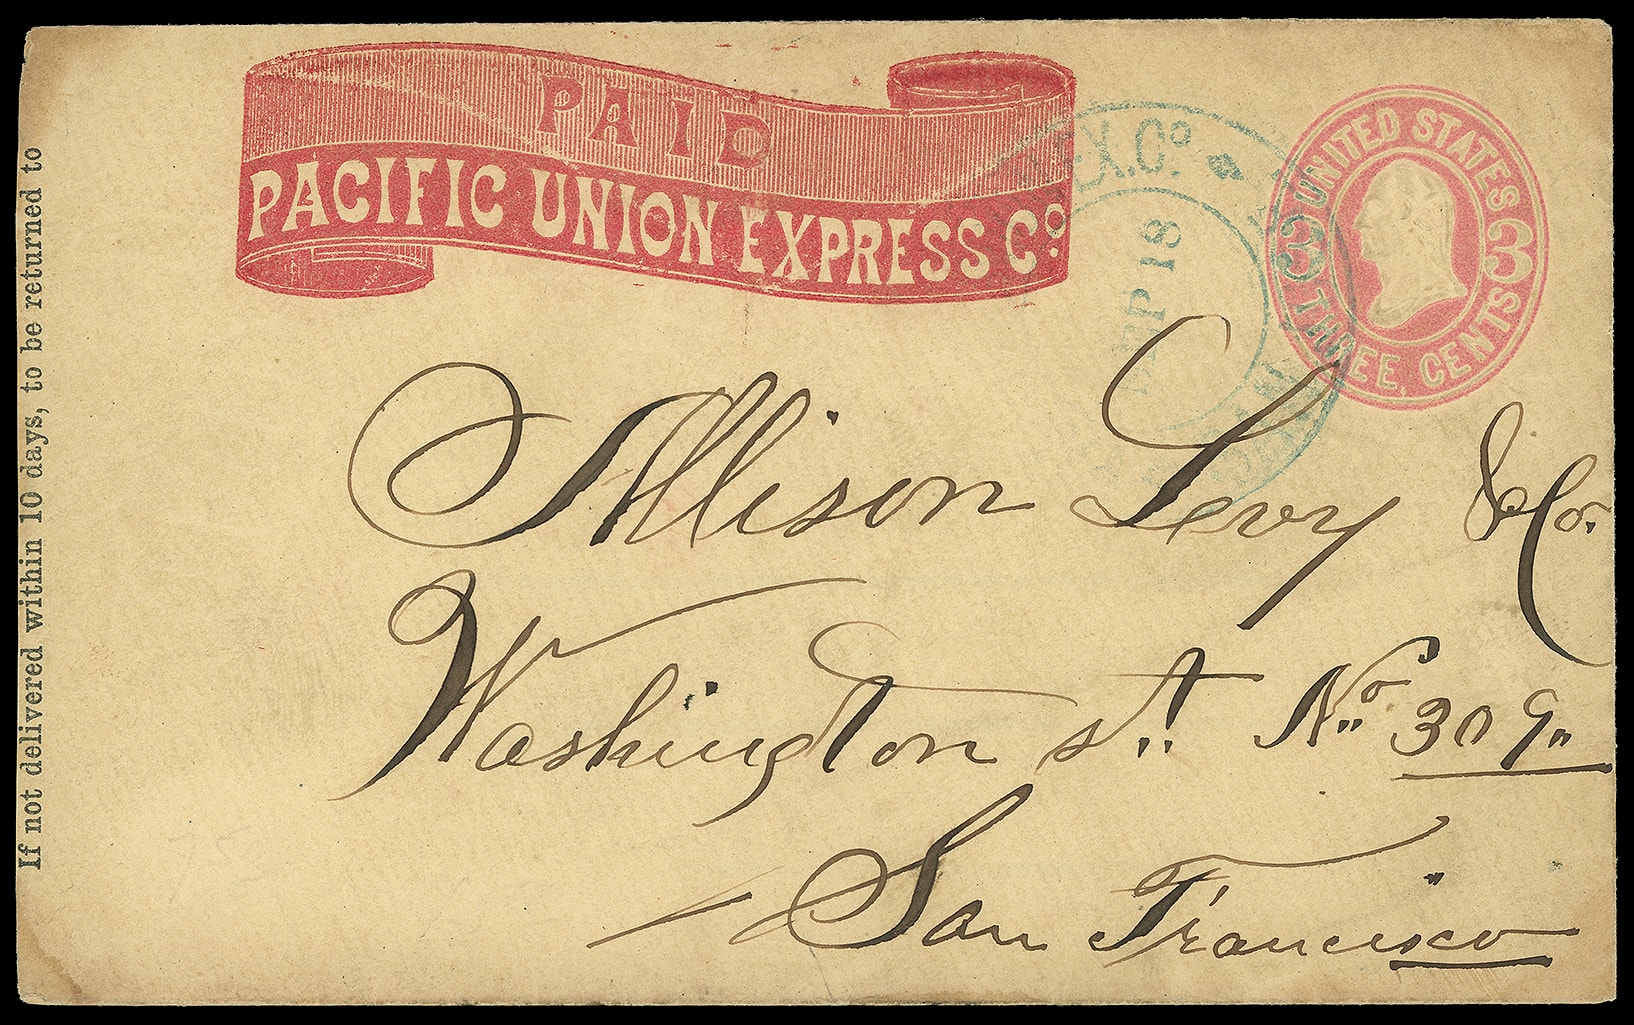 If not delivered within 10 days, to be returned to
PAID
PACIFIC UNION EXPRESS Co.
EX. Co.
SEP 18
UNITED STATES
3 3
THREE CENTS
Allison Levy & Co.
Washington st. No. 309
San Francisco